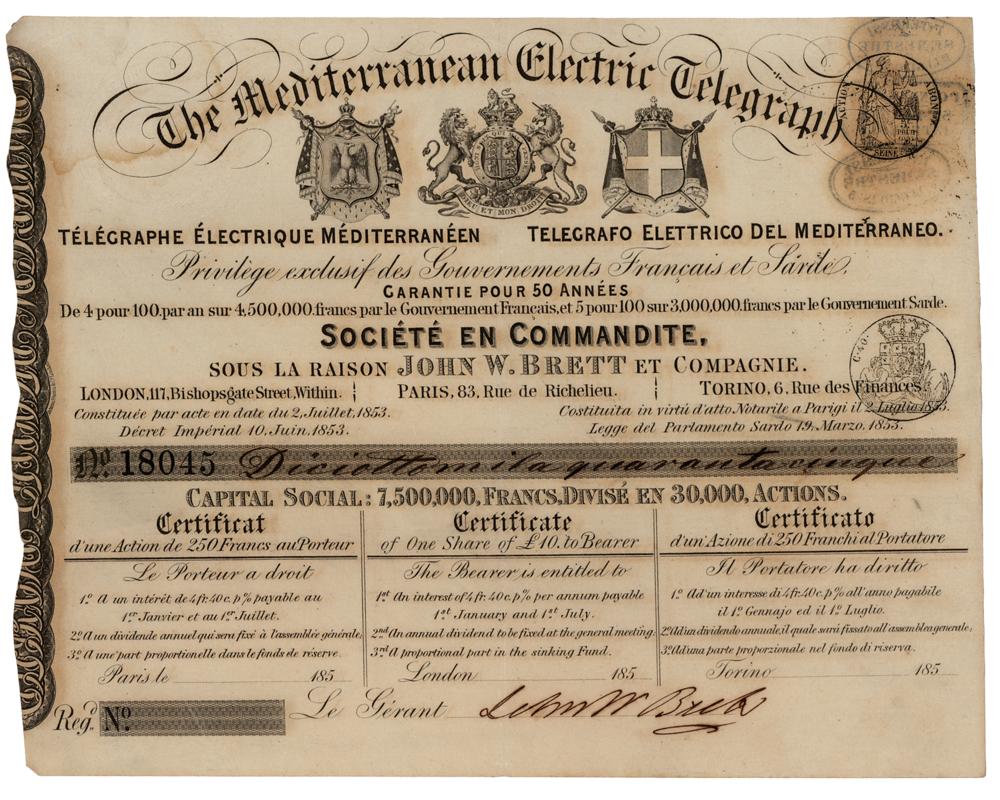 The Mediterranean Electric Telegraph
DIEU ET MON DROIT
ACTION
ABON
SEINE
TÉLÉGRAPHE ÉLECTRIQUE MÉDITERRANÉEN
TELEGRAFO ELETTRICO DEL MEDITERRANEO.
Privilège exclusif des Gouvernements Français et Sarde.
GARANTIE POUR 50 ANNÉES
De 4 pour 100. par an sur 4,500,000. francs par le Gouvernement Français, et 5 pour 100 sur 3,000,000. francs par le Gouvernement Sarde.
SOCIÉTÉ EN COMMANDITE,
SOUS LA RAISON JOHN W. BRETT ET COMPAGNIE.
LONDON, 117, Bishopsgate Street Within.
PARIS, 83, Rue de Richelieu.
TORINO, 6, Rue des Finances
C. 40.
Constituée par acte en date du 2, Juillet, 1853.
Costituita in virtú d'atto Notarile a Parigi il 2, Luglio 1853.
Décret Impérial 10. Juin, 1853.
Legge del Parlamento Sardo 19, Marzo, 1853.
No. 18045 Diciottomila quarantacinque
CAPITAL SOCIAL: 7,500,000, FRANCS, DIVISÉ EN 30,000, ACTIONS.
Certificat
d'une Action de 250 Francs au Porteur
Le Porteur a droit
1.º A un intérêt de 4 fr. 40 c. p% payable au
1.er Janvier et au 1.er Juillet.
2.º A un dividende annuel qui sera fixé à l'assemblée générale;
3.º A une part proportionelle dans le fonds de réserve.
Paris le 185
Certificate
of One Share of £10. to Bearer
The Bearer is entitled to
1st An interest of 4 fr. 40 c. p% per annum payable
1st January and 1st July.
2nd An annual dividend to be fixed at the general meeting;
3rd A proportional part in the sinking Fund.
London 185
Certificato
d'un'Azione di 250 Franchi al Portatore
Il Portatore ha diritto
1.º Ad un interesse di 4 fr. 40 c. p% all'anno pagabile
il 1.º Gennajo ed il 1.º Luglio.
2.º Ad un dividendo annuale, il quale sará fissato all'assemblea generale;
3.º Ad una parte proporzionale nel fondo di riserva.
Torino 185
Regd No.
Le Gérant John W Brett